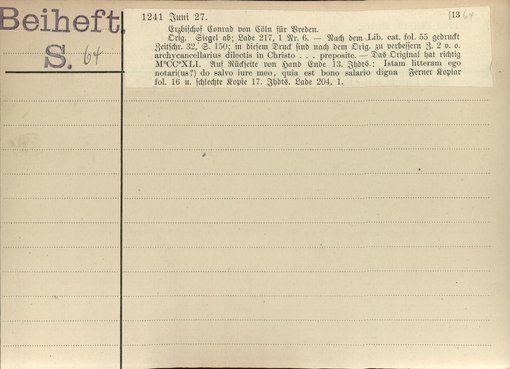 Beiheft.
S. 64
1241 Juni 27. [13 64
Erzbischof Conrad von Cöln für Vreden.
Orig. Siegel ab; Lade 217, 1 Nr. 6. — Nach dem Lib. cat. fol. 55 gedruckt
Zeitschr. 32, S. 150; in diesem Druck sind nach dem Orig. zu verbessern Z. 2 v. o.
archycancellarius dilectis in Christo . . . preposite. — Das Original hat richtig
MºCCºXLI. Auf Rückseite von Hand Ende 13. Jhdts.: Istam litteram ego
notari(us?) do salvo iure meo, quia est bono salario digna Ferner Kopiar
fol. 16 u. schlechte Kopie 17. Jhdts. Lade 204, 1.